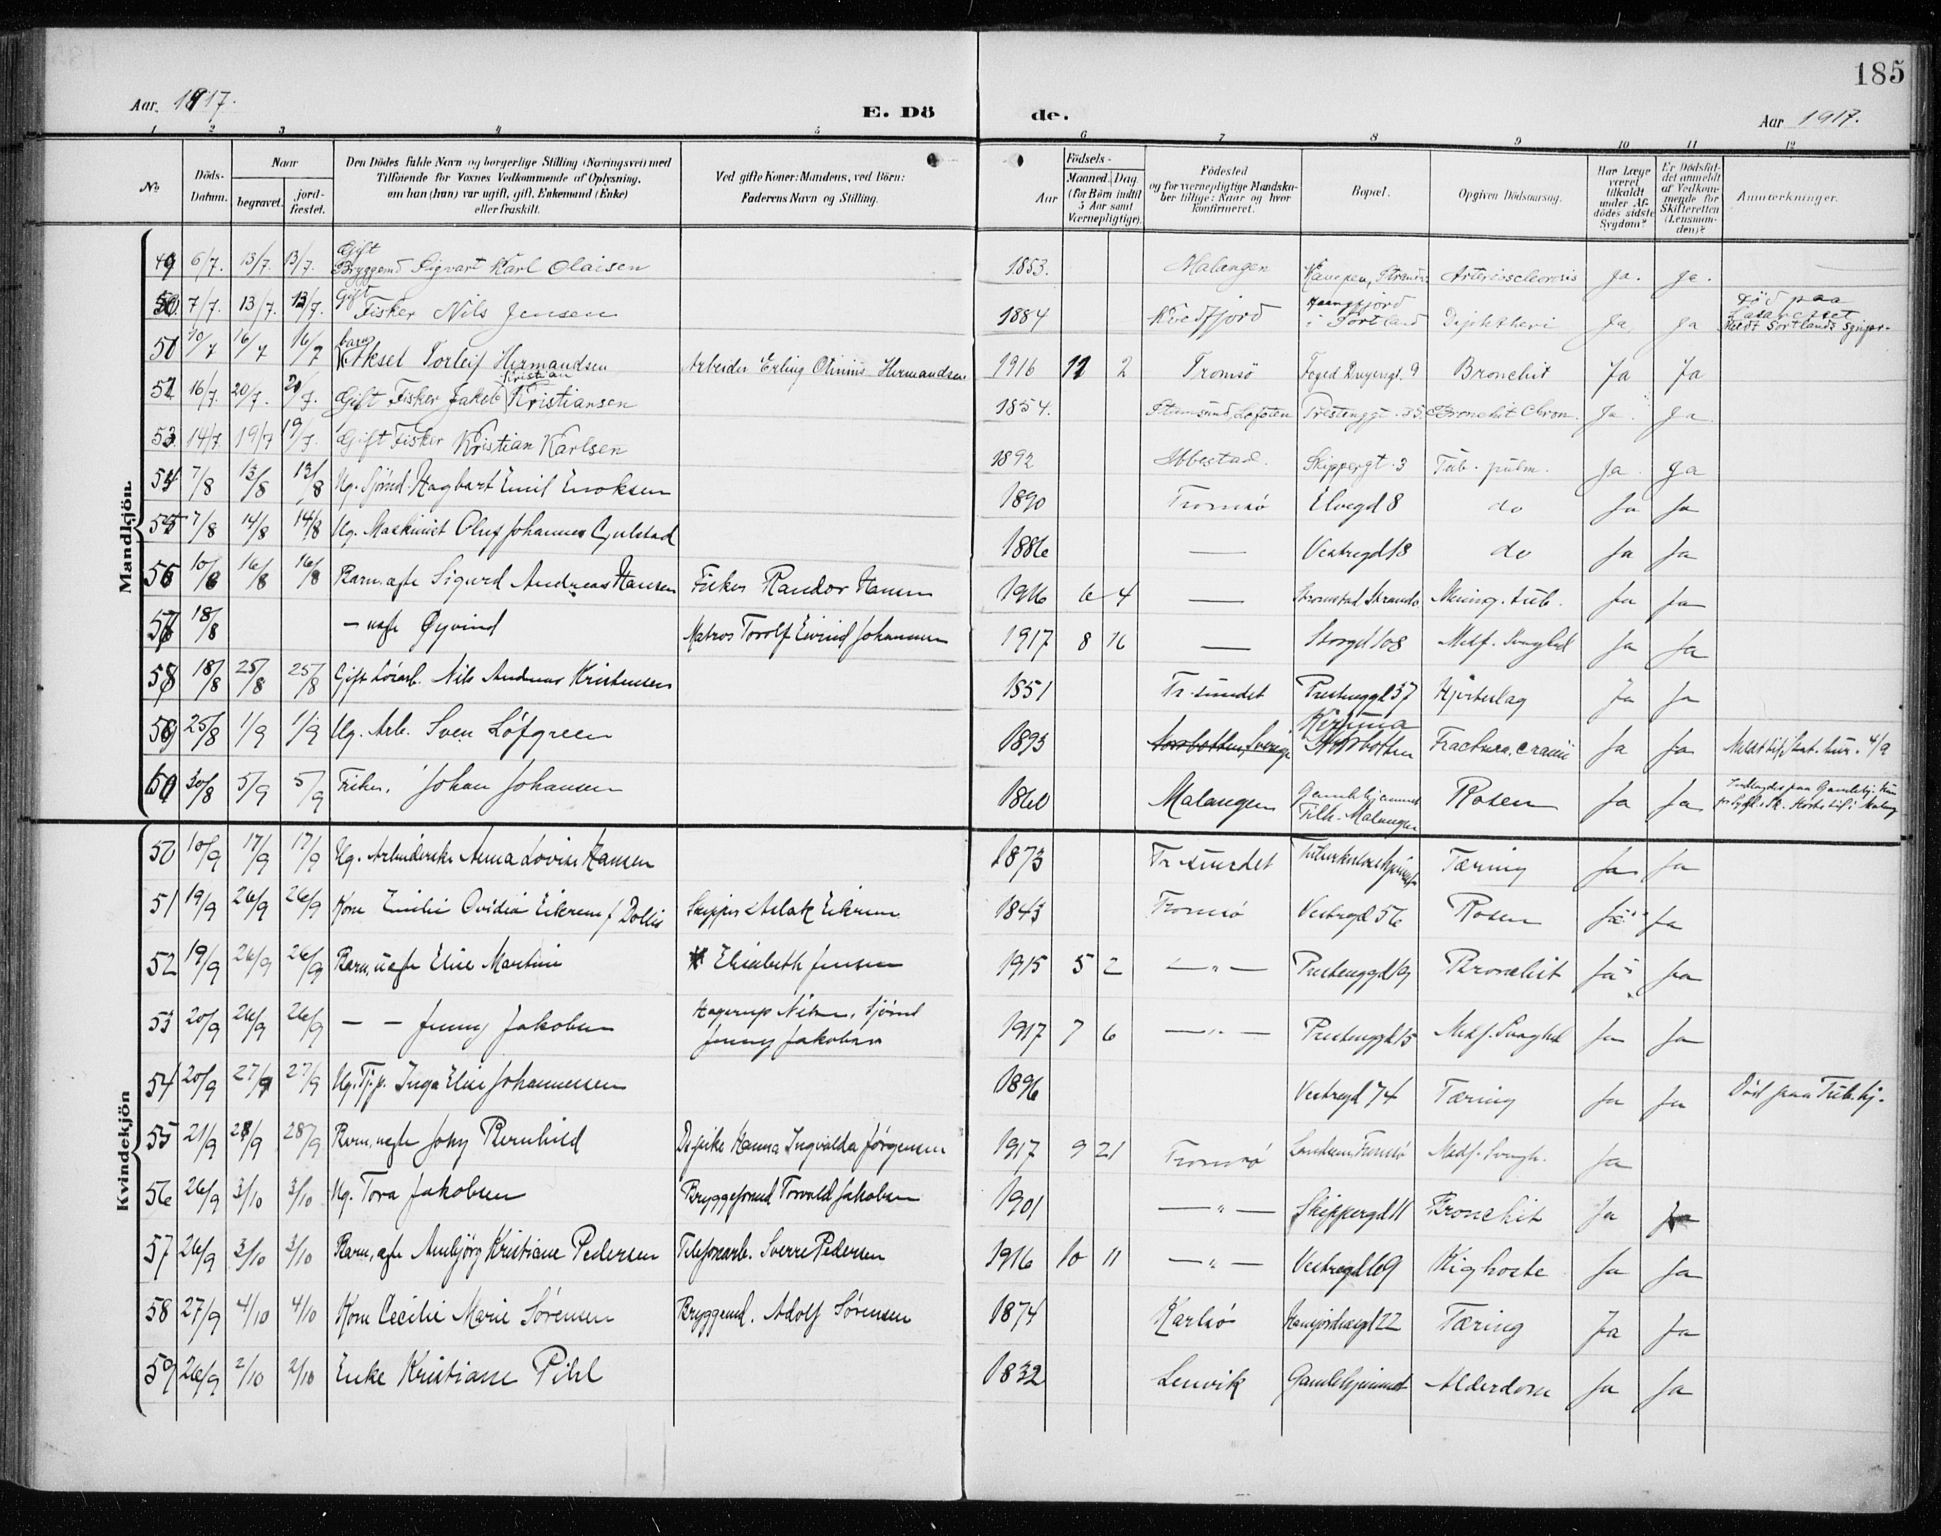 185
Aar. 1917.
E. Dö
de.
Aar 1917.
1 2 3 4 5 6 7 8 9 10 11 12
No
Döds-
Datum.
Naar
begravet.
jord-
fæstet.
Den Dödes fulde Navn og borgerlige Stilling (Næringsvei) med
Tilföiende for Voxnes Vedkommende af Oplysning,
om han (hun) var ugift, gift, Enkemand (Enke)
eller fraskilt.
Ved gifte Koner: Mandens, ved Börn:
Faderens Navn og Stilling.
Aar
Födsels-
Maaned. Dag.
(for Börn indtil
5 Aar samt
Værnepligtige).
Födested
og for værnepligtige Mandska-
ber tillige: Naar og hvor
konfirmeret.
Bopæl.
Opgiven Dödsaarsag.
Har Læge
været
tilkaldt
under Af-
dödes sidste
Sygdom?
Er Dödsfal-
det anmeldt
af Vedkom-
mende for
Skifteretten
(Lensman-
den)?
Anmerkninger.
Mandkjön.
49 6/7. 13/7. 13/7. Gift Bryggemd Sigvart Karl Olaisen 1853. Malangen Arteriosclerosis Ja. Ja.
50 7/7 13/7. 13/7. Gift Fisker Nils Jensen 1884 Kvedfjord i Sortland Diphtheri Ja Ja Död paa Lasarettet
51 10/7 16/7 16/7 barn Aksel Torleif Hermandsen Arbeider Erling Olinius Hermandsen 1916 11 2 Tromsö Bronchit Ja Ja
52 16/7. 20/7. 20/7. Gift Fisker Jakob Kristian Kristiansen 1854. Stamsund, Lofoten Bronchit Chron. Ja. Ja
53. 14/7 19/7 19/7. Gift Fisker Kristian Karlsen 1892 Ibbestad. Skippergt. 3 Tub. pulm. Ja. Ja
54 7/8 13/8 13/8 Ug. Sjömd. Hagbart Emil Enoksen 1890 Tromsö Elvegd 8 do Ja Ja
55 7/8 14/8 14/8 Ug. Maskinist Oluf Johannes 1886 — Vestregd 18 do Ja Ja
56 10/8 16/8 16/8 Barn, ægte Sigurd Andreas Hansen Fisker Randor Hansen 1916 6 4 — Mening. tub. Ja Ja
57 18/8 — uægte Øyvind Matros Torolf Eivind Johansen 1917 8 16 — Storgd 108 Medf. Svaghed Ja Ja
58 18/8 25/8 25/8 Gift Nils Andreas Kristensen 1851 Tr.sundet Prestenggd 37 Hjerteslag Ja Ja
59 25/8 1/9 1/9 Ug. Arb. Sven Löfgreen 1893 Norrbotten, Sverige Kiruna Norrbotten Fractura cranii Ja Ja
60 30/8 5/9 5/9 Fisker, Johan Johansen 1860 Malangen Gamlehjemmet Tilh. Malangen Rosen Ja Ja
Kvindekjön
50 10/9 17/9 17/9 Ug. Arbeiderske Anna Lovise Hansen 1873 Tr.sundet Tæring Ja Ja
51 19/9 26/9 26/9 Kone Emilie Ovidia Eikrem f. Skipper Aslak Eikrem 1843 Tromsö Vestregd 56 Rosen Ja Ja
52 19/9 26/9 26/9 Barn, uægte Elise Martine Elisabeth Jensen 1915 5 2 — " — Prestenggd 19 Bronchit Ja Ja
53 20/9 26/9 26/9 — — Jenny Jakobsen Hagerup Nilsen, Sjömd Jenny Jakobsen 1917 7 6 — " — Prestenggd 15 Medf. Svaghet Ja Ja
54 20/9 27/9 27/9 Ug. Tj.p. Inga Elise Johannessen 1896 Vestregd 74 Tæring Ja Ja Död paa Tub.hj.
55 21/9 28/9 28/9 Barn, uægte Jony Bernhild Hanna Ingvalda Jørgensen 1917 9 21 Tromsö Medf. Svagh. Ja
56 26/9 3/10 3/10 Ug. Tora Jakobsen Bryggeformd Torvald Jakobsen 1901 — " — Skippergd 11 Bronchit Ja Ja
57 26/9 3/10 3/10 Barn, ægte Annbjörg Kristiane Pedersen Telefonarb. Sverre Pedersen 1916 10 11 — " — Vestregd 69 Kighoste Ja Ja
58 27/9 4/10 4/10 Kone Cecilie Marie Sörensen Bryggemd. Adolf Sörensen 1874 Karlsö Tæring Ja Ja
59 26/9 2/10 2/10 Enke Kristiane Pihl 1832 Lenvik Gamlehjemmet Alderdom Ja Ja